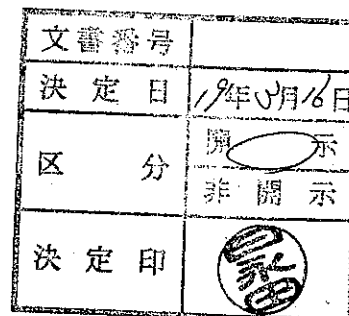 文書番号
決定日 19年3月16日
区分 開示
非開示
決定印